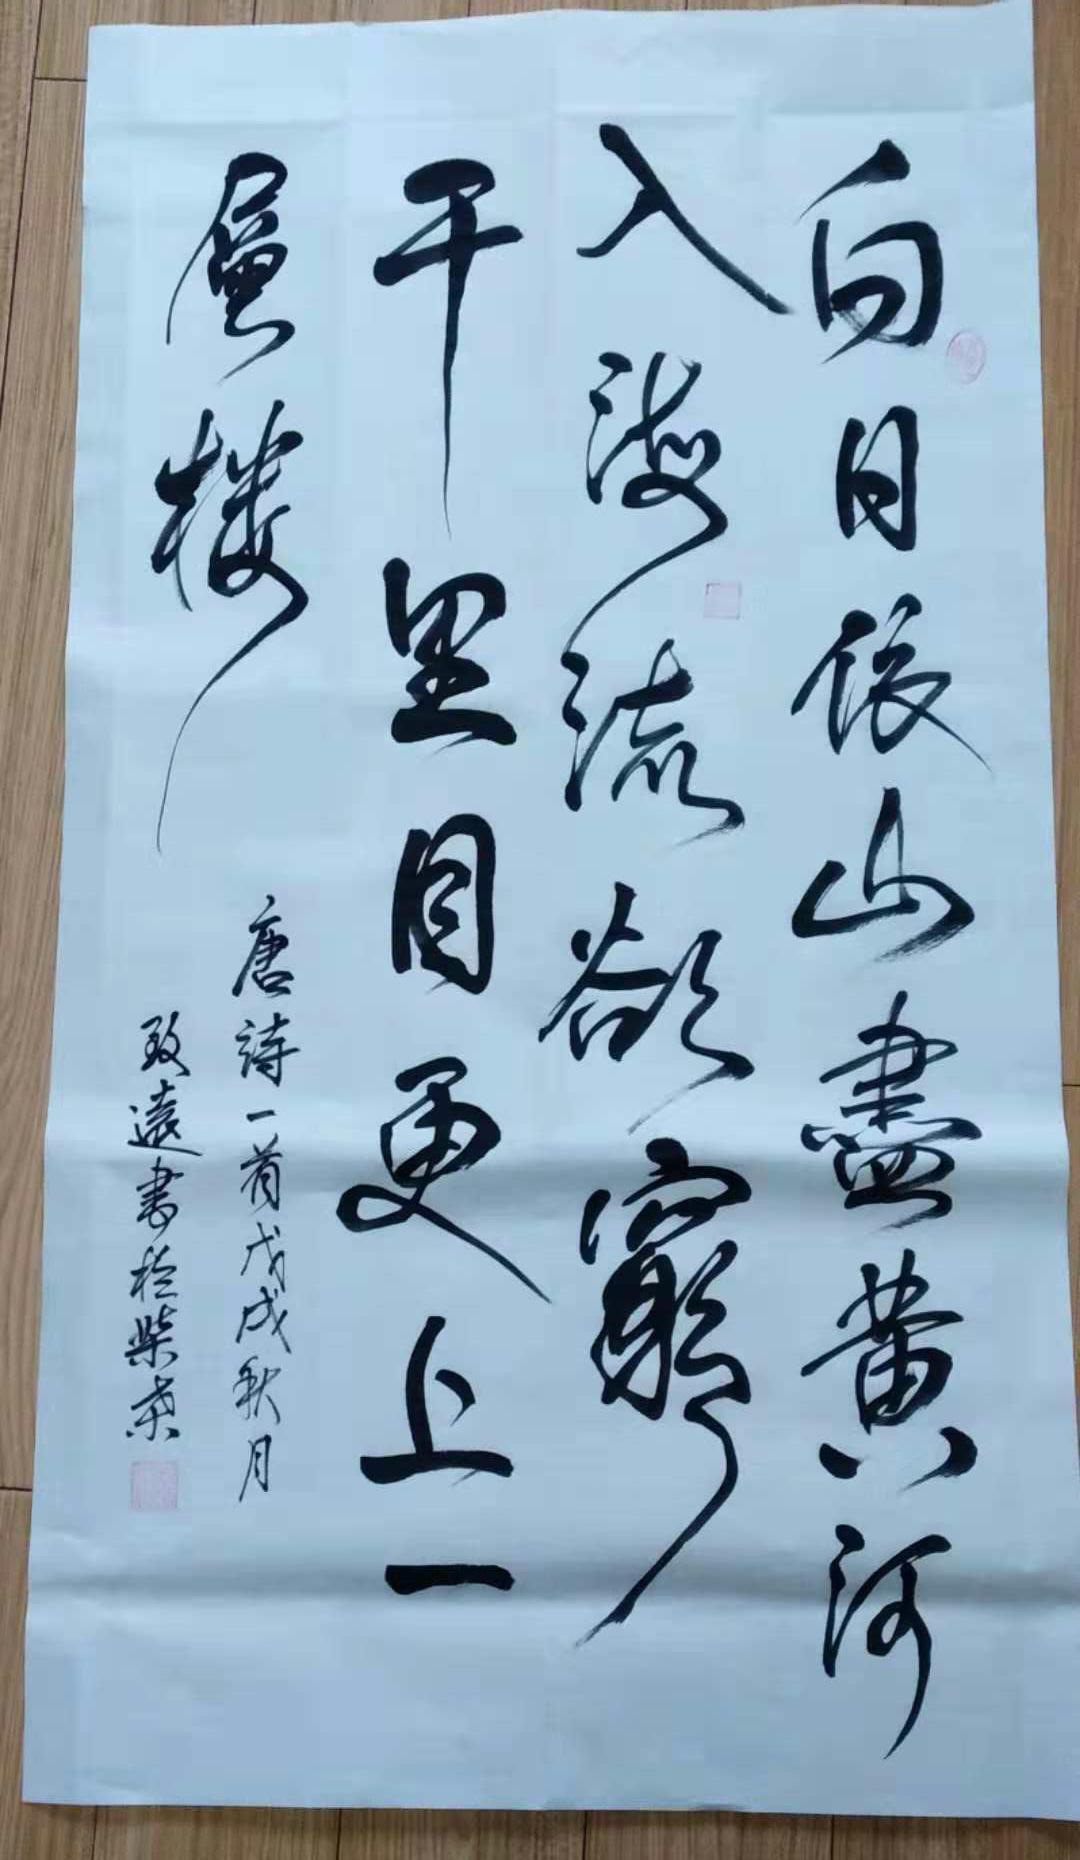 白日依山盡黄河
入海流欲窮
千里目更上一
層樓
唐詩一首戊戌秋月
致遠書於柴桑